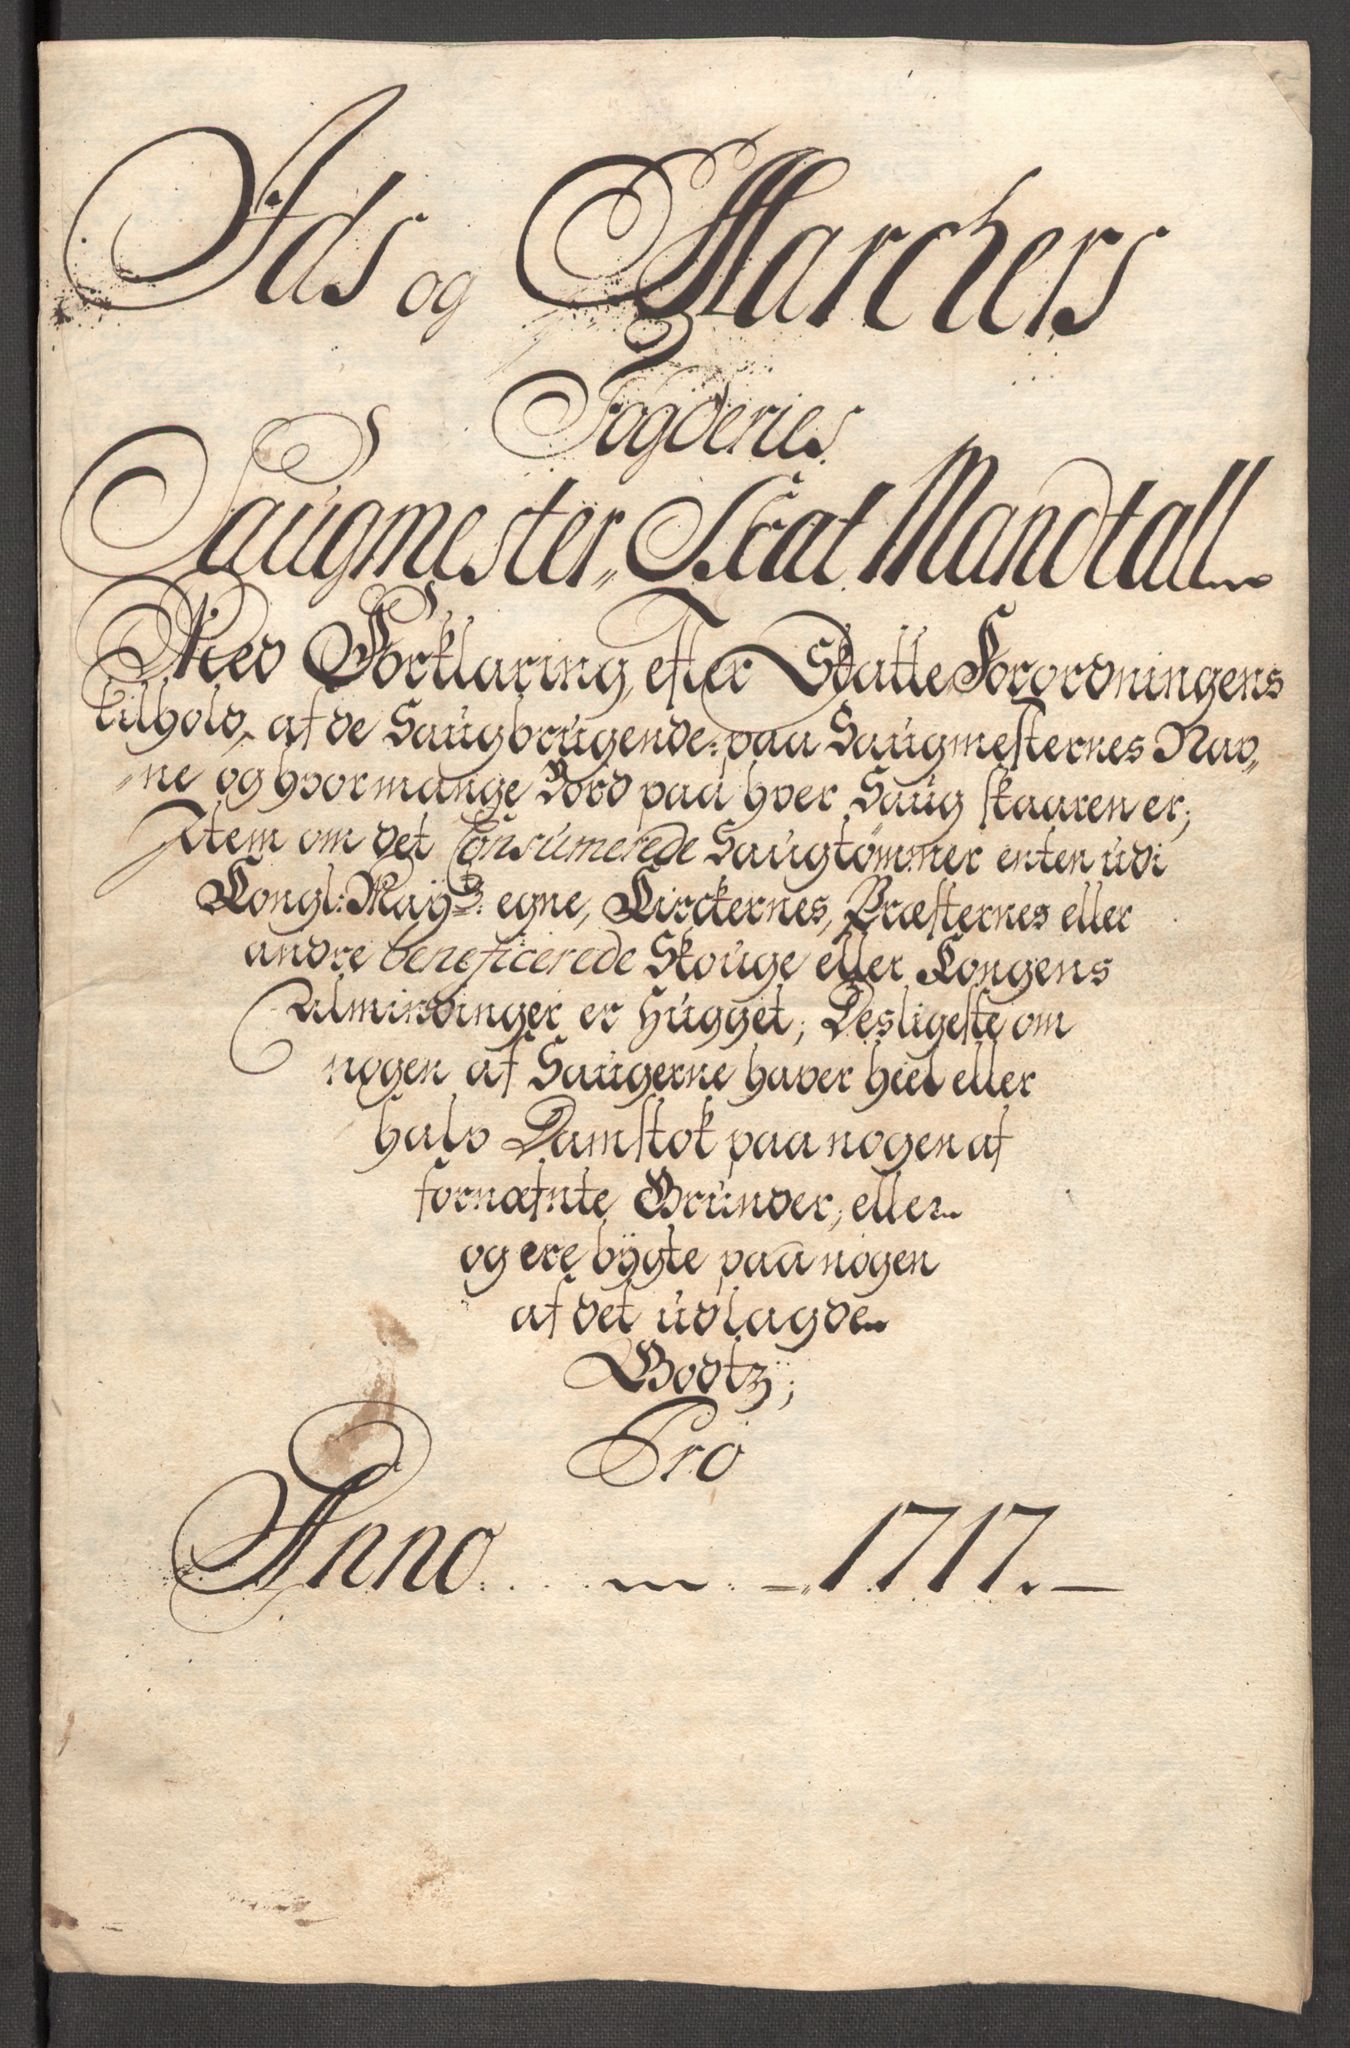 Ids og Marchers
Fogderies
Saugmester„ Skat Mandtall
Med Forklaring, efter Skatte Forordningens
tilhold, af de Saugbrugende: paa Saugmesternes Nav„
„ne og hvor mange Bord paa hver Saug skaaren er;
Item om det Consumerede Saugtømmer enten udi
Kongl: May:tz: egne, Kirckernes, Præsternes eller
andre beneficerede Skouge eller Kongens
Almindinger er hugget; Desligeste om
nogen af Saugerne haver heel eller
halv Damstok paa nogen af
fornæfnte Grunder, eller
og ere bygte paa nogen
af det udlagde
Godtz;
Pro
Anno 1717.